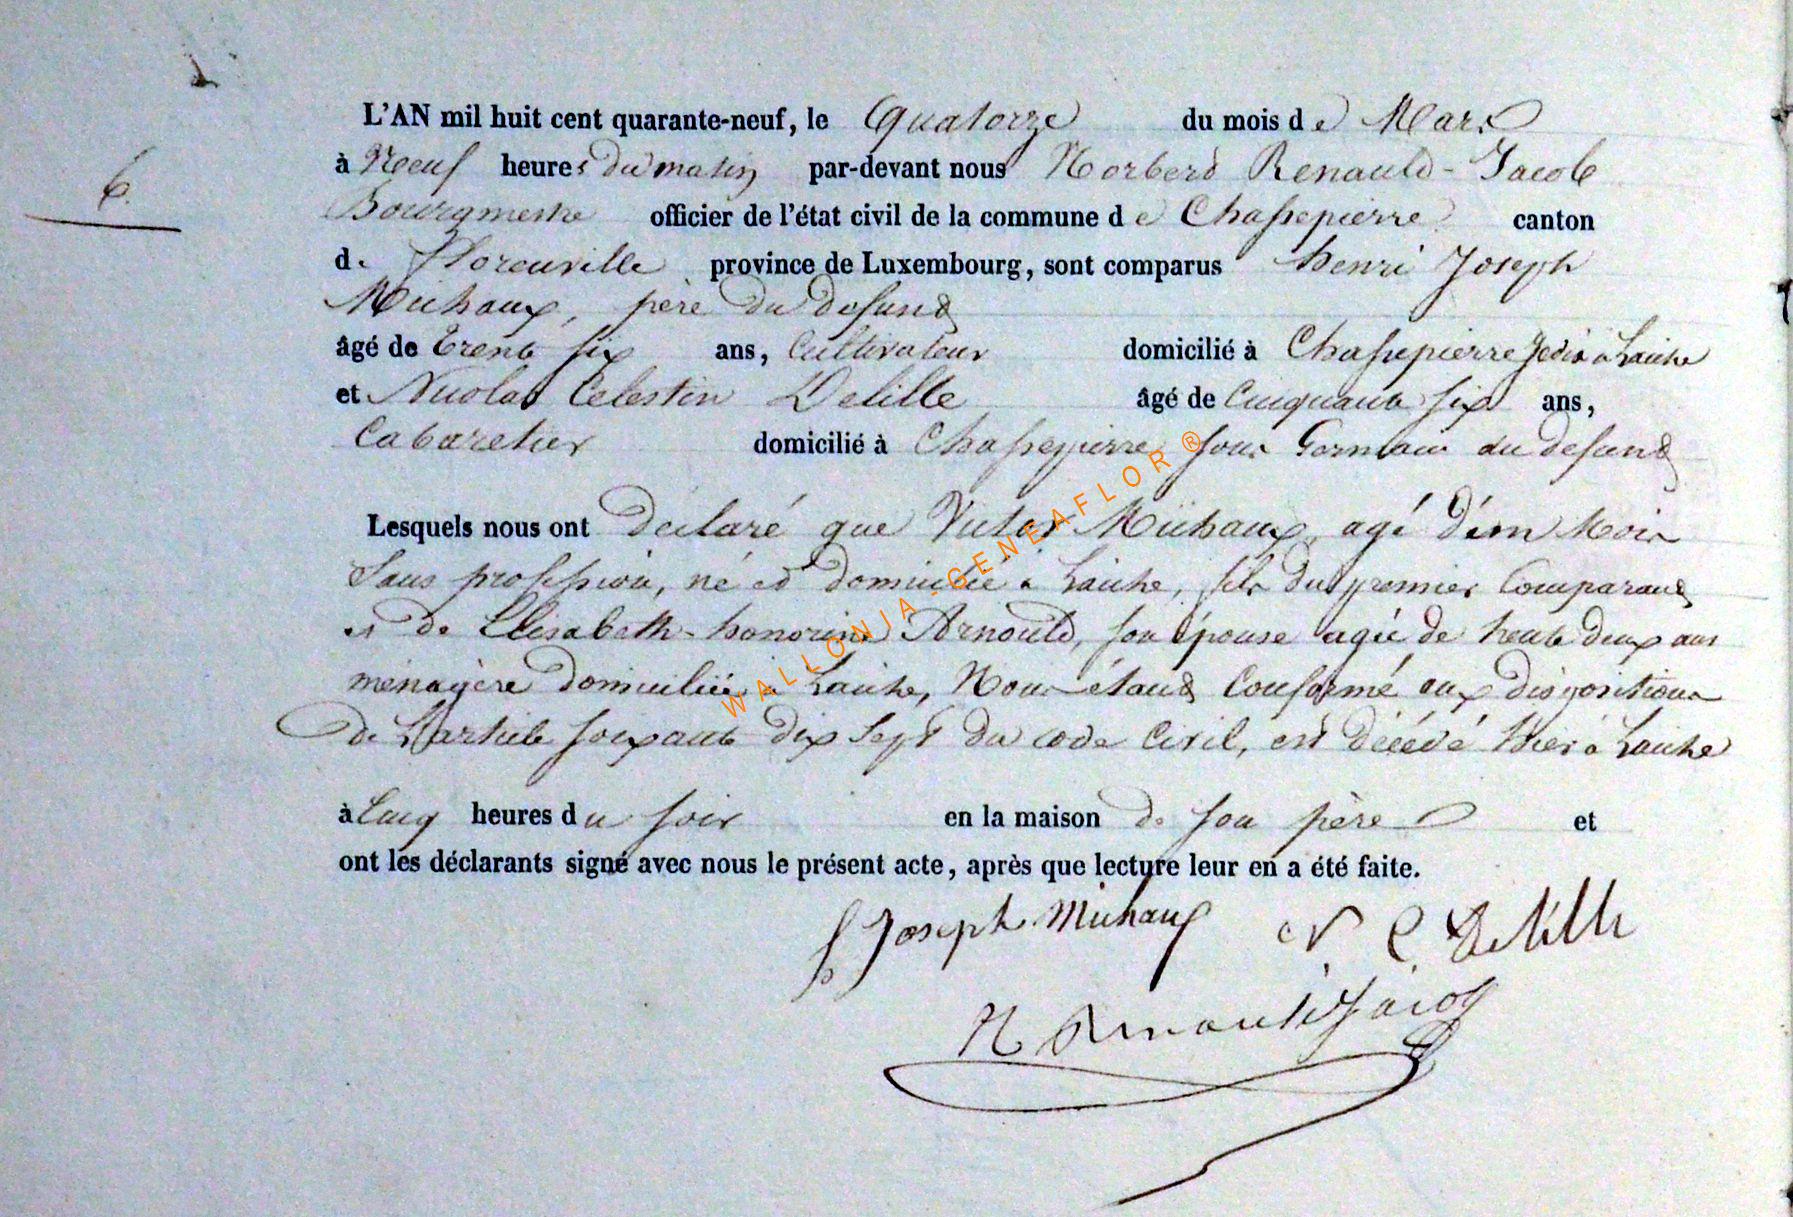 L'AN mil huit cent quarante-neuf, le Quatorze du mois de Mars
6.
à Neuf heures du matin par-devant nous Norbert Renauld-Jacob
Bourgmestre officier de l'état civil de la commune de Chassepierre canton
de Florenville province de Luxembourg, sont comparus henri Joseph
Michaux, père du defunt
âgé de Trente six ans, Cultivateur domicilié à Chassepierre à Laiche
et Nicolas Celestin Delille âgé de Cinquante six ans,
Cabaretier domicilié à Chassepierre sous Germain du defunt
Lesquels nous ont déclaré que Victor Michaux, agé d'un Mois
Sans profession, né et domicilié à Laiche, fils du premier Comparant
et de Elisabeth-honorine Arnould, son épouse agée de trente deux ans
ménagère domiciliée à Laiche, Nous étant Conformé aux dispositions
de L'article soixante dix Sept du code Civil, est décédé hier à Laiche
à Cinq heures du soir en la maison de son père et
ont les déclarants signé avec nous le présent acte, après que lecture leur en a été faite.
h Joseph Michaux N C Delille
N Renauld Jacob
WALLONIA-GENEAFLOR ®